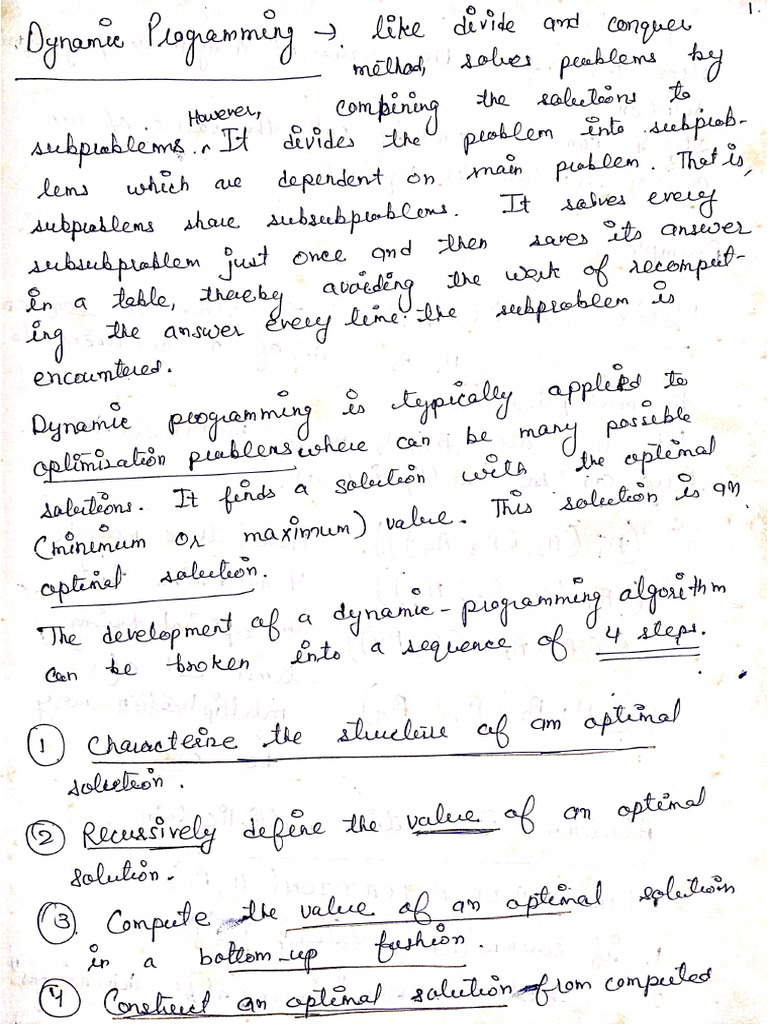 1.
Dynamic Programming → like divide and conquer
method, solves problems by
However, combining the solutions to
subproblems. It divides the problem into subprob-
lems which are dependent on main problem. That is,
subproblems share subsubproblems. It solves every
subsubproblem just once and then saves its answer
in a table, thereby avoiding the work of recomput-
ing the answer every time the subproblem is
encountered.
Dynamic programming is typically applied to
optimization problems where can be many possible
solutions. It finds a solution with the optimal
(minimum or maximum) value. This solution is an
optimal solution.
The development of a dynamic-programming algorithm
can be broken into a sequence of 4 steps.
① Characterize the structure of an optimal
solution.
② Recursively define the value of an optimal
solution.
③ Compute the value of an optimal solution
in a bottom-up fashion.
④ Construct an optimal solution from computed